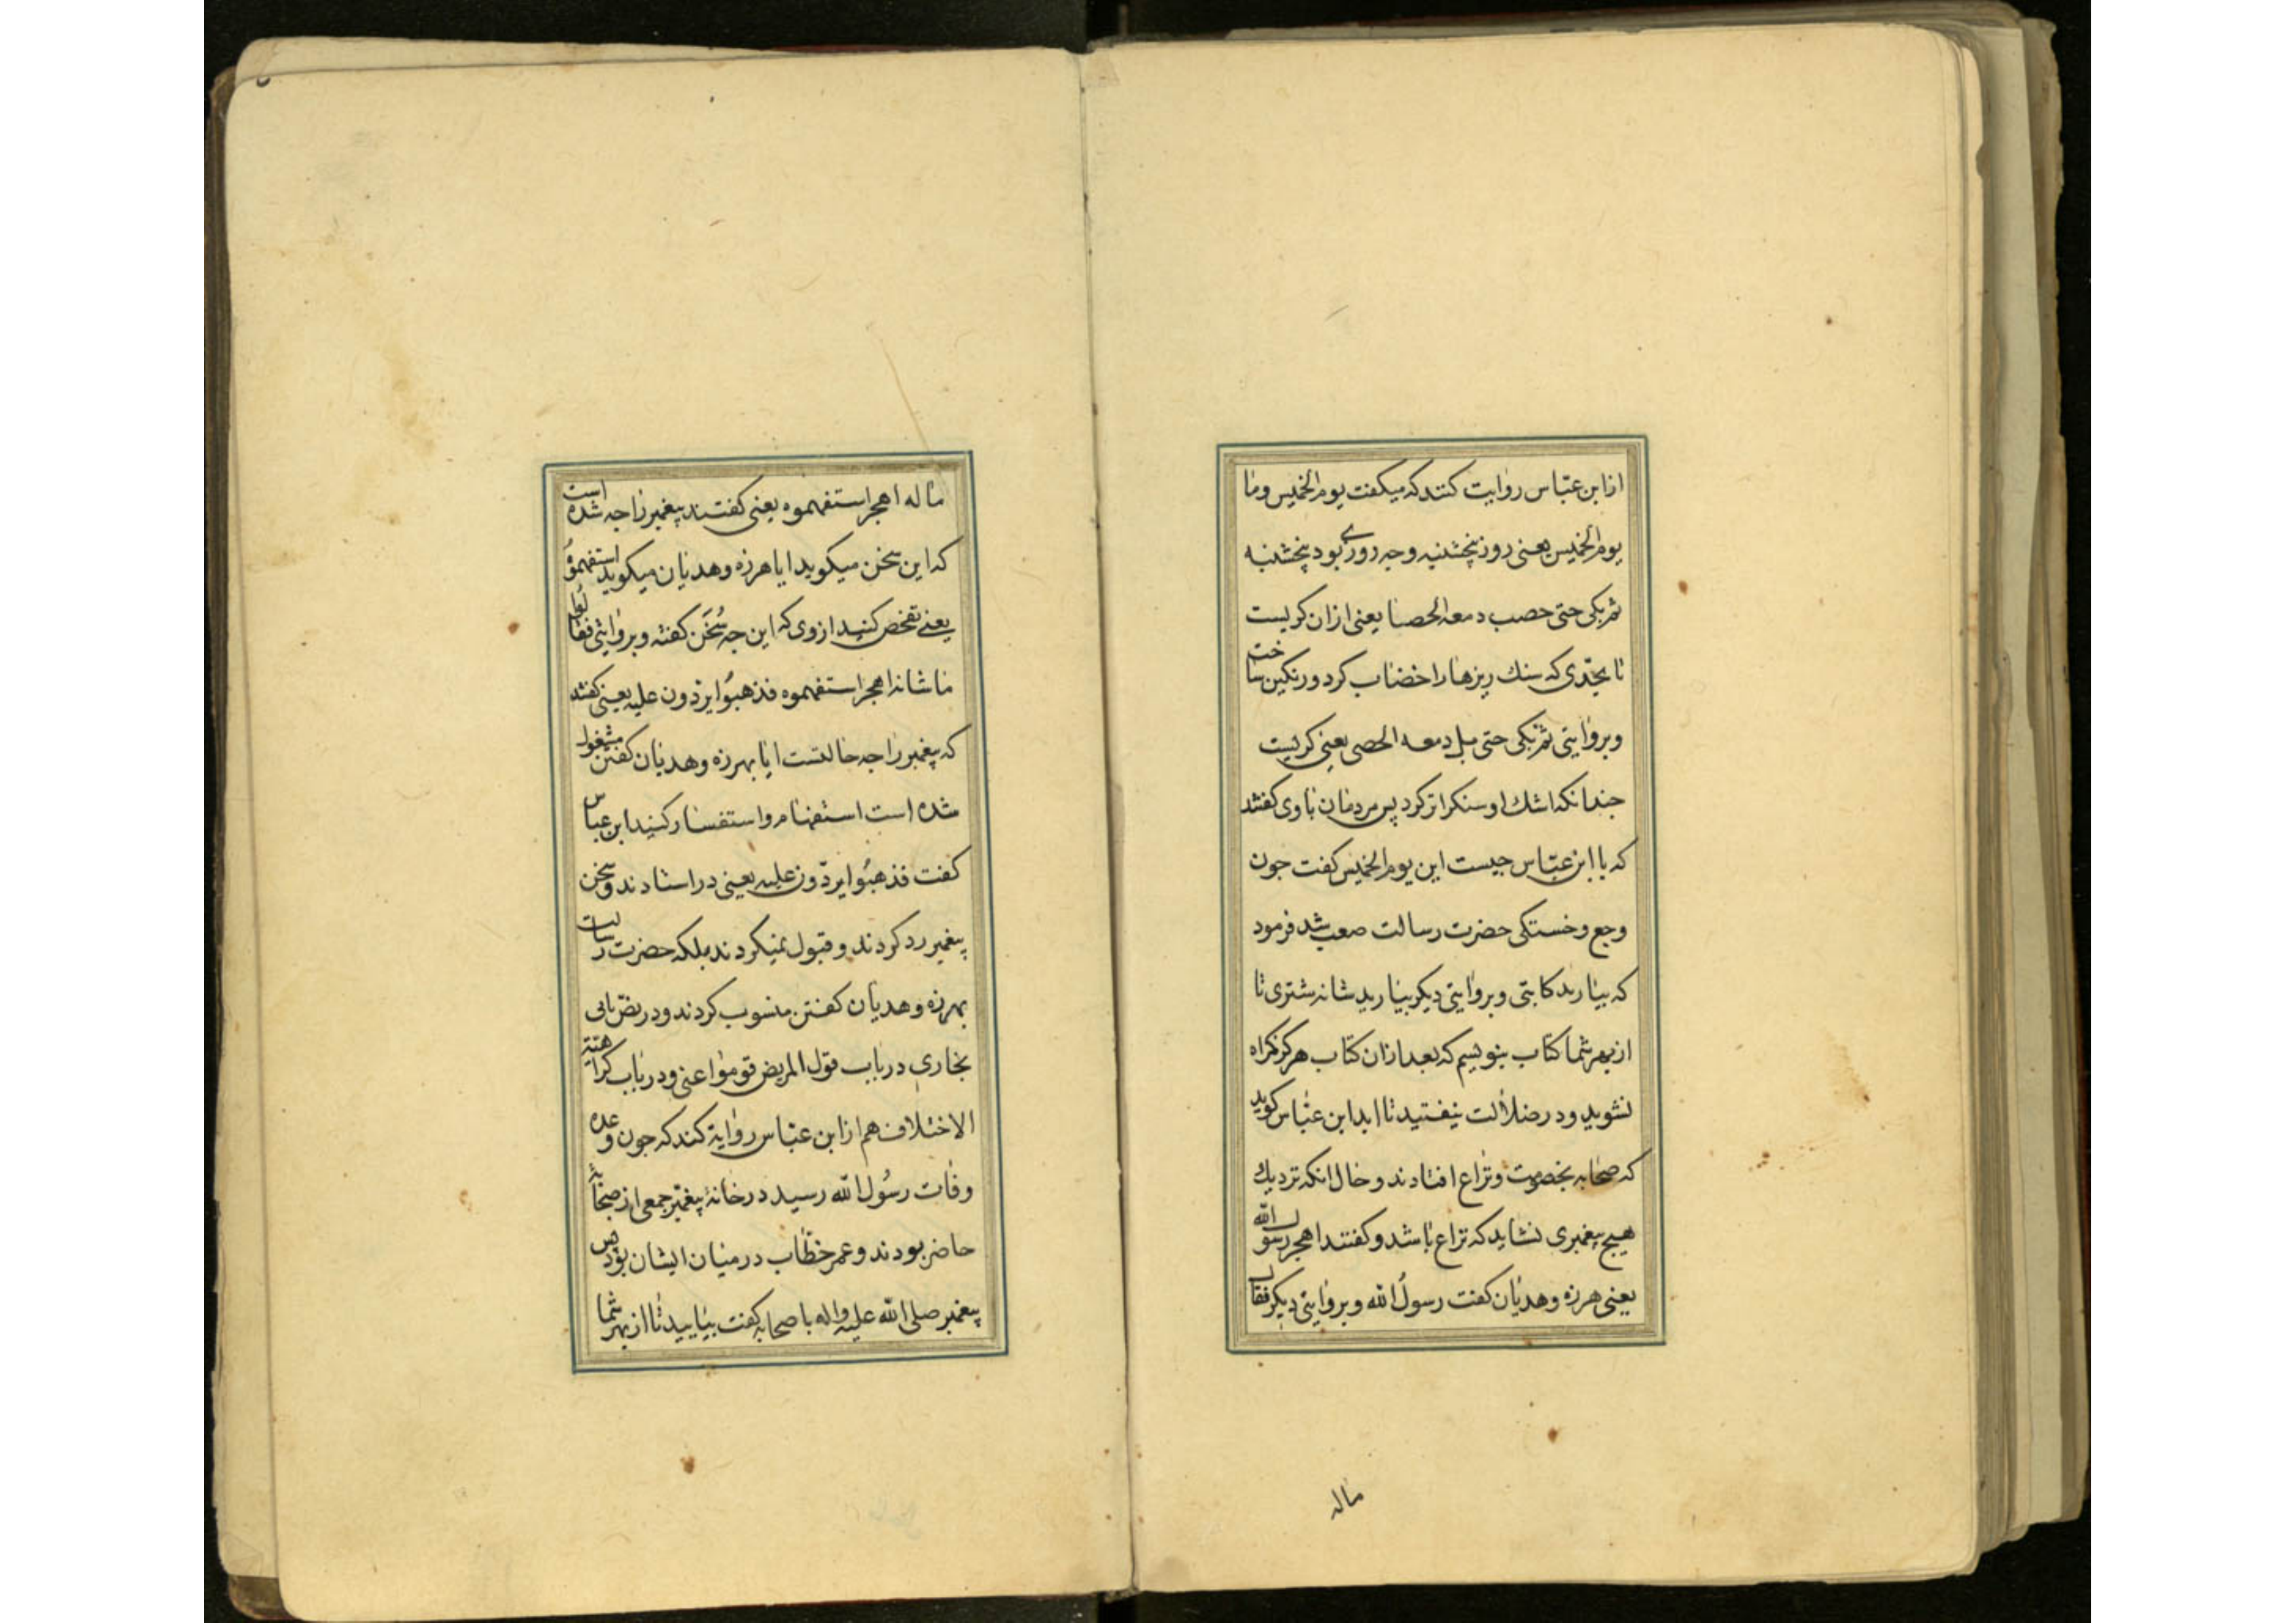 از ابن عبّاس روایت کنند که میکفت یوم الخمیس وما
یوم الخمیس یعنی روز پنجشنبه وجه روزی بود پنجشنبه
ثم بکی حتی حصب دمعه الحصا یعنی ازان کریست
تا بحدّی که سنك ریزها را خضاب کرد ورنکین ساخت
وبروایتی ثم بکی حتی بل دمعه الحصی یعنی کریست
جندانکه اشك او سنکرا تر کرد پس مردمان با وی کفتند
که یا ابن عبّاس جیست این یوم الخمیس کفت جون
وجع وخستکی حضرت رسالت صعب شد فرمود
که بیارید کتابی وبروایتی دیکر بیارید شانه شتری تا
از بهر شما کتاب بنویسم که بعد ازان کتاب هرکز کمراه
نشوید ودر ضلالت نیفتید تا ابد ابن عبّاس کوید
که صحابه بخصومت ونزاع افتادند وحال انکه نزدیك
هیج پیغمبری نشاید که نزاع باشد وکفتند اهجر رسول الله
یعنی هرزه وهدیان کفت رسولُ الله وبروایتی دیکر فقال
ماله
ما له اهجر استفهموه یعنی کفتند پیغمبر را جه شده است
که این سخن میکوید ایا هرزه وهدیان میکوید استفهموُ
یعنے تفحص کنید از وی که این جه سُخَن کفته وبروایتی فقالُوا
ما شانه اهجر استفهموه فذهبوُا یردون علیه یعنی کفتند
که پیغمبر را جه حالتست ایا بهرزه وهدیان کفتن مشغول
شده است استفهام واستفسار کنید ابن عباس
کفت فذهبُوا یردّون علیه یعنی در استادند وسخن
پیغمبر رد کردند وقبول نمیکردند بلکه حضرت رسالت
بهرزه وهدیان کفتن منسوب کردند ودر نصّ بابی
بخاری در باب قول المریض قوموا عنی ودر باب کراهتیة
الاختلاف هم از ابن عبّاس روایة کند که جون وعده
وفات رسُول الله رسید در خانۀ پیغمبر جمعی از صحابه
حاضر بودند وعمر خطّاب در میان ایشان بود پس
پیغمبر صلی الله علیه واله با صحابه کفت بیایید تا از بهر شما